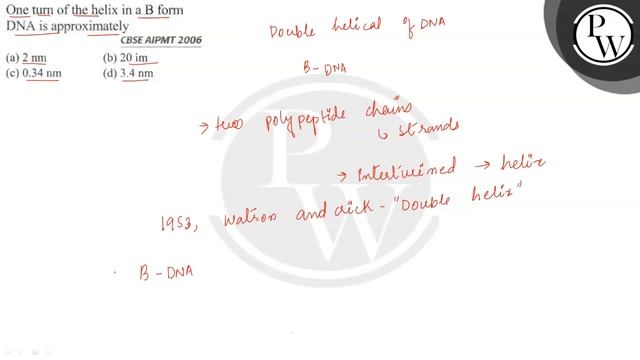 One turn of the helix in a B form
DNA is approximately
CBSE AIPMT 2006
(a) 2 nm (b) 20 im
(c) 0.34 nm (d) 3.4 nm
Double helical of DNA
B - DNA
→ two polypeptide chains
↳ strands
→ Intertwined → helix
1953, Watson and crick - "Double helix"
B - DNA
PW
PW